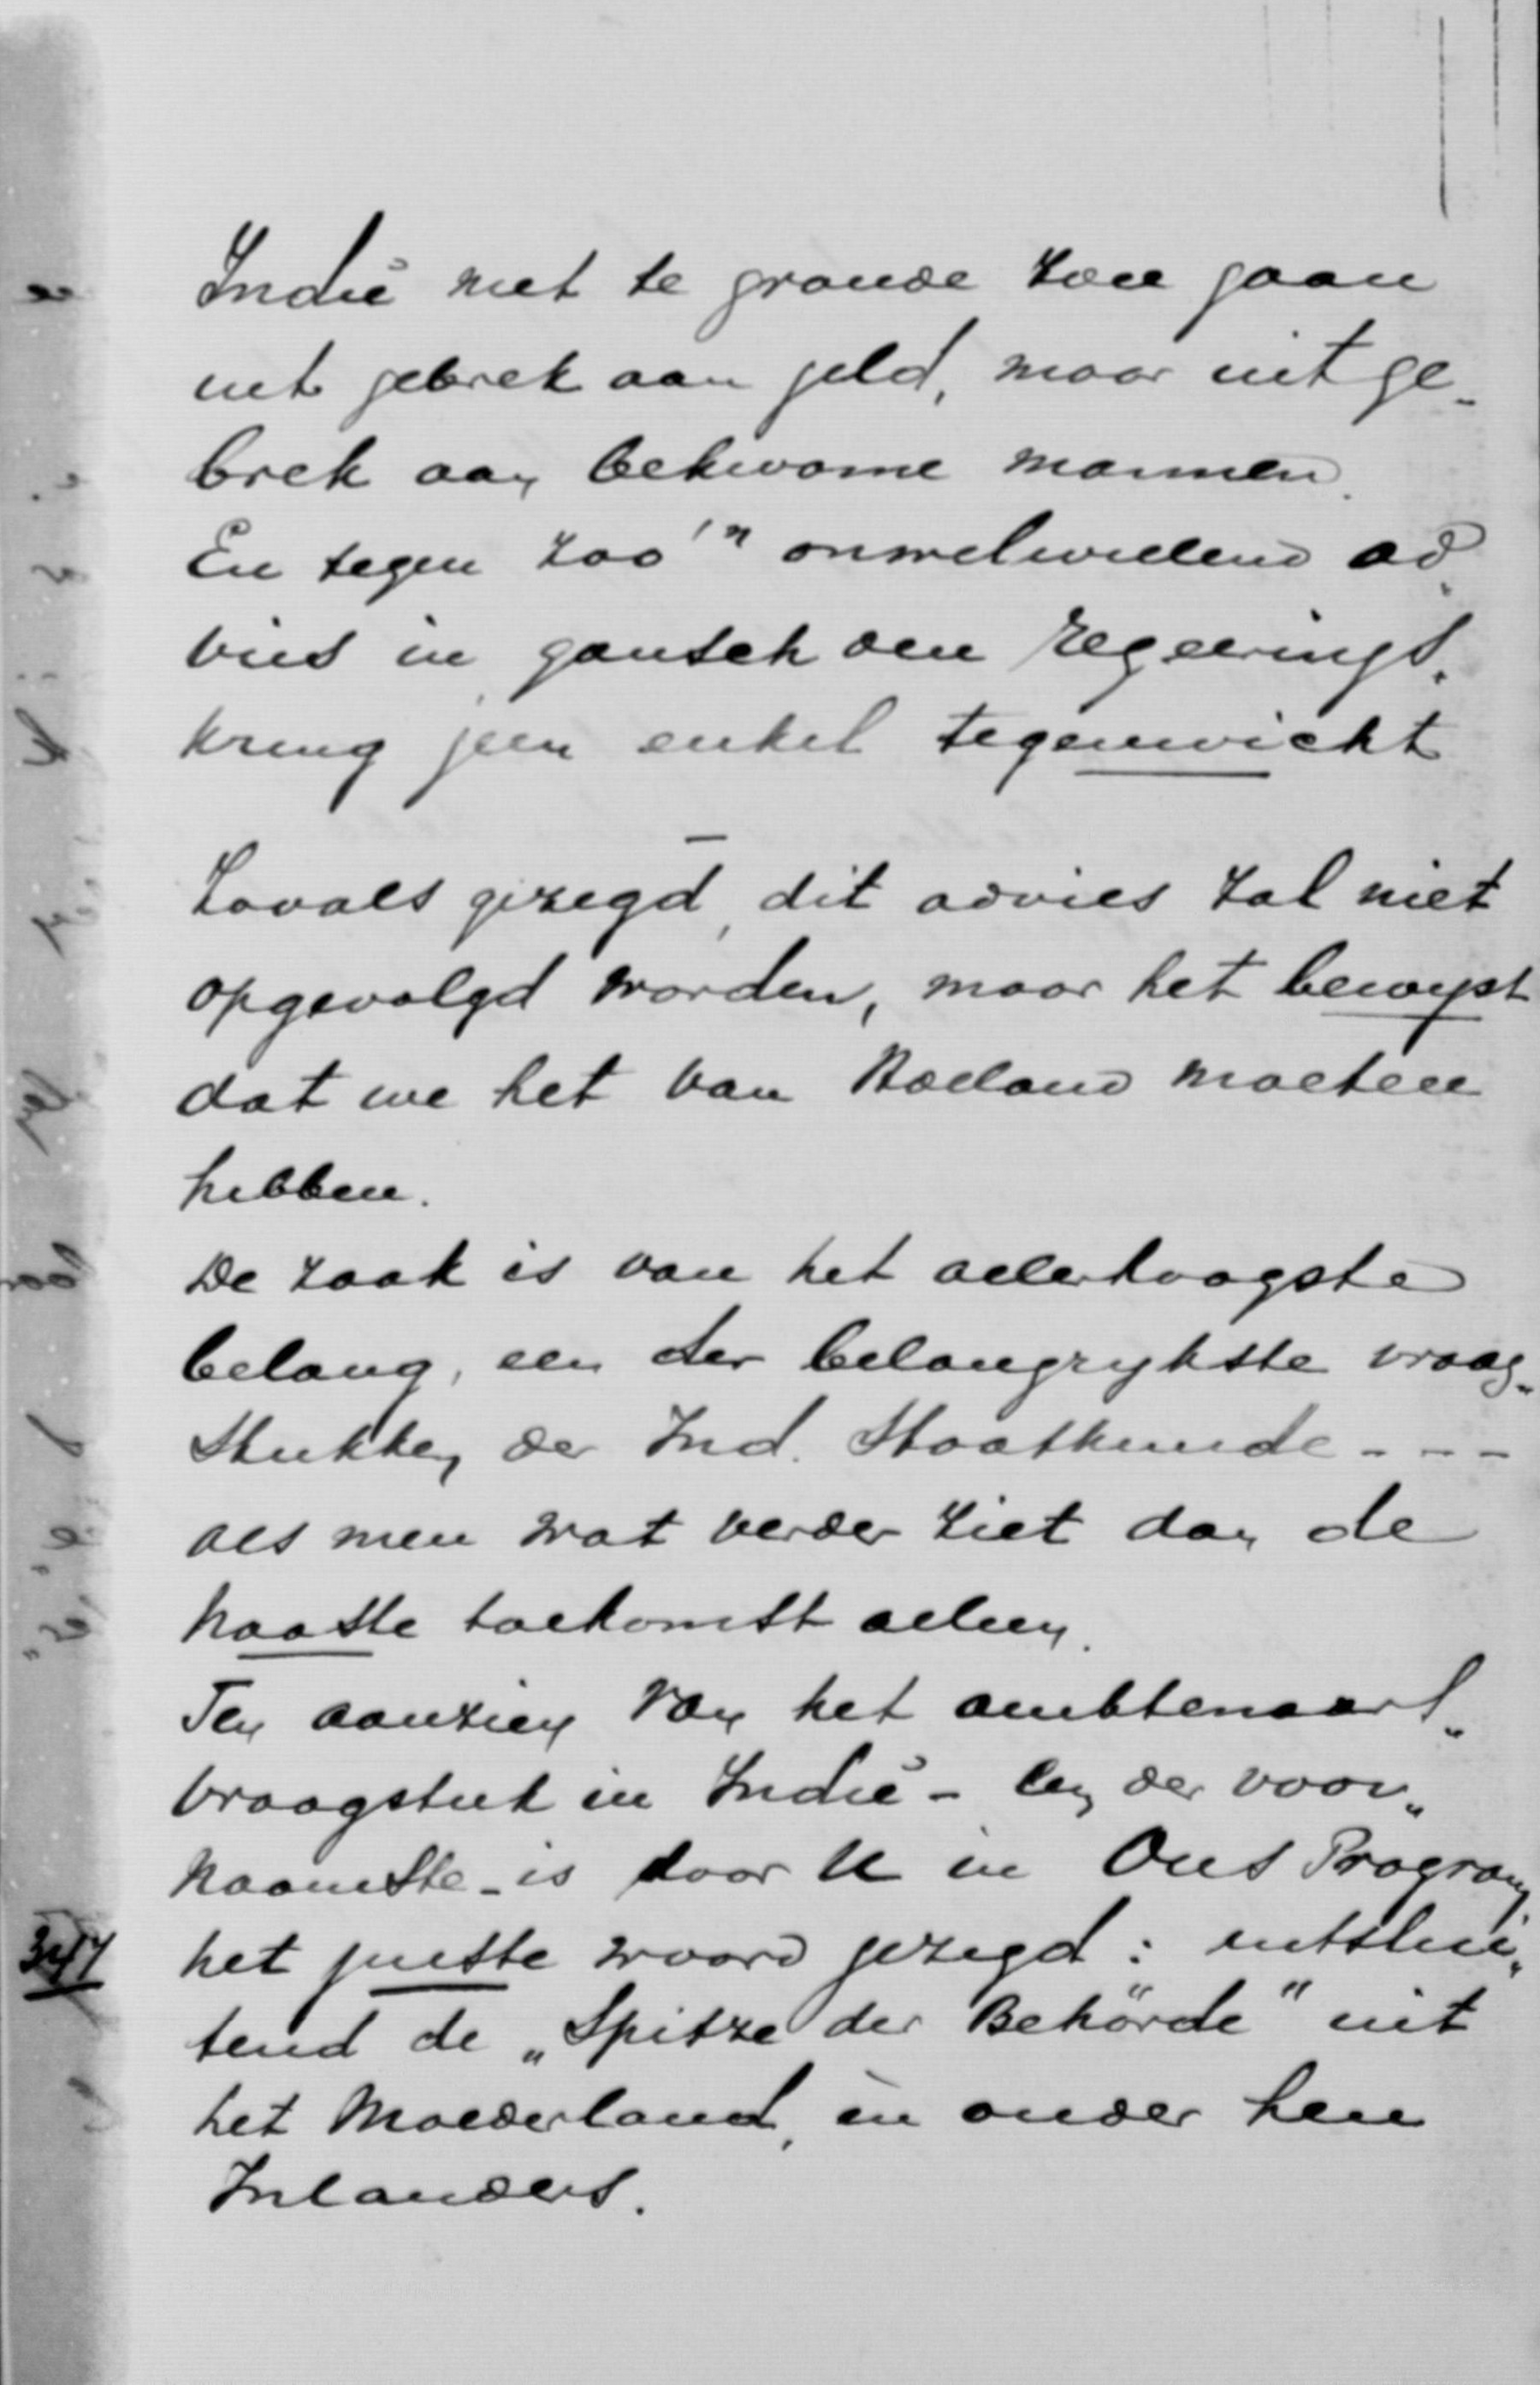 Indië niet te gronde zou gaan
uit gebrek aan geld, maar uit ge-
brek aan bekwame mannen.
En tegen zoo'n onwelwillend ad„
vies in gansch den regeerings„
kring geen enkel tegenwicht
—
Zooals gezegd, dit advies zal niet
opgevolgd worden, maar het bewyst
dat we het van Holland moeten
hebben.
De zaak is van het allerhoogste
belang, een der belangrykste vraag„
stukken der Ind. Staatkunde - - -
als men wat verder ziet dan de
naaste toekomst alleen.
Ten aanzien van het ambtenaars„
vraagstuk in Indië - een der voor„
naamste - is door U in Ons Program
347 het juiste woord gezegd: uitslui„
tend de „Spitze der Behörde" uit
het Moederland, en onder hen
Inlanders.